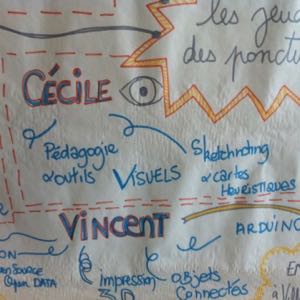 les jeu
des ponctu
CÉCILE
Pédagogie
& outils VISUELS
Sketchnoting
& cartes
HEURISTIQUES
VINCENT
ARDUINO
ON
Open DATA
impression
3D
objets
Connectés
EN